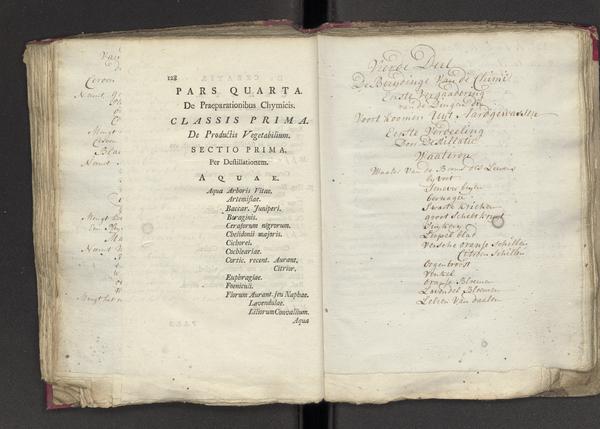 128
PARS QUARTA.
De Praeparationibus Chymicis.
CLASSIS PRIMA.
De Productis Vegetabilium.
SECTIO PRIMA.
Per Destillationem.
AQUAE.
Aqua Arboris Vitae.
Artemisiae.
Baccar. Juniperi.
Boraginis.
Cerasorum nigrorum.
Chelidonii majoris.
Cichorei.
Cochleariae.
Cortic. recent. Aurant.
Citrior.
Euphragiae.
Foeniculi.
Florum Aurant. seu Naphae.
Lavendulae.
Liliorum Convallium.
Aqua
Vierde Deel
De Bereydinge van de Chimi
Eerste Vergaadering
van de Dingen die
Voort koomen Uyt Aardgewassen
Eerste Verdeeling
Door Destillatie
Waateren
Waater van de Boom des Leevens
byvoet
Jenever beyen
bernagie
Swarte Kriecken
groot Schelkruyt
Suykery
Leepel blad
versche oranje Schillen
Citroen Schillen
Oogentroost
Venkel
oranje Bloemen
Lavendel Bloemen
Lelien van daalen